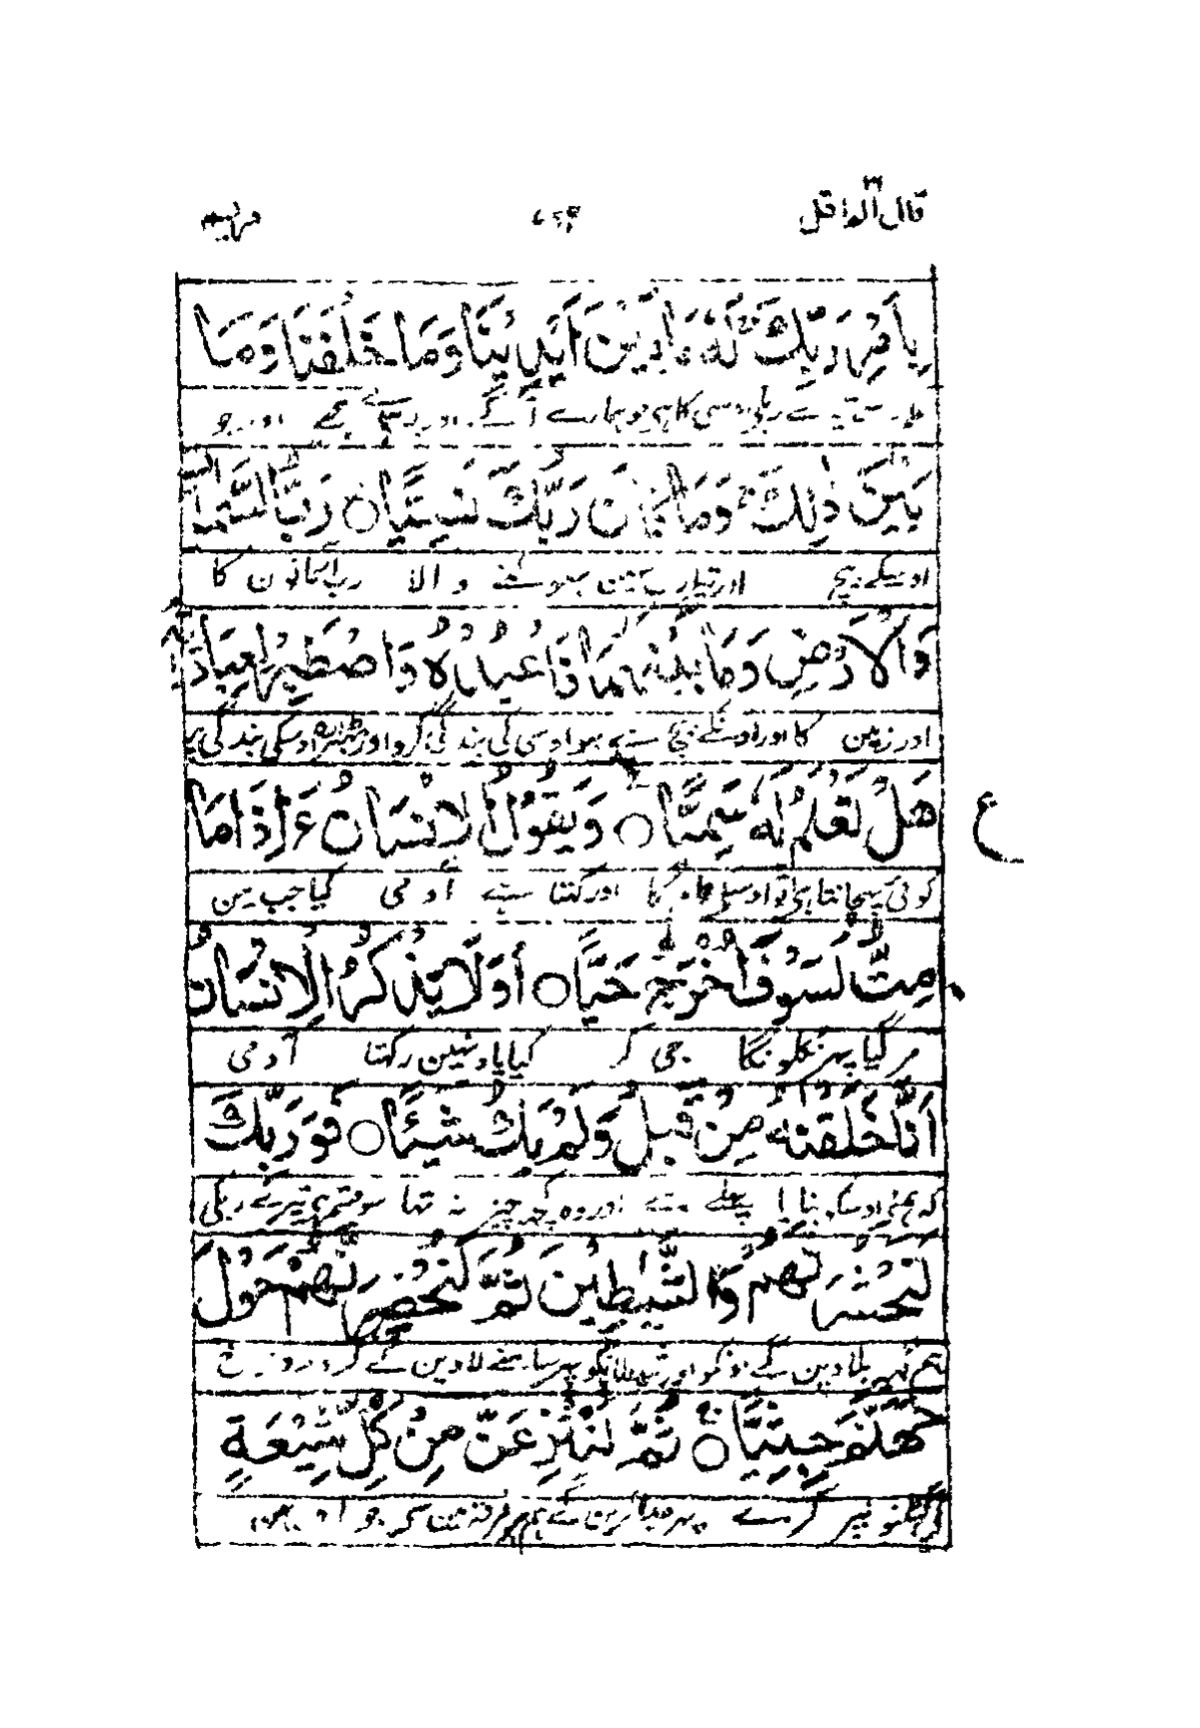 قال الم اقل مریم
بِاَمْرِ رَبِّكَ لَهٗ مَا بَيْنَ اَيْدِيْنَا وَمَا خَلْفَنَا وَمَا
سے جو ہمارے آگے اور جو
بَيْنَ ذٰلِكَ وَمَا كَانَ رَبُّكَ نَسِيًّا ○ رَبُّ السَّمٰوٰتِ
اوسکے بیچ اور تیرا رب نہین بھولنے والا رب آسمانون کا
وَالْاَرْضِ وَمَا بَيْنَهُمَا فَاعْبُدْهُ وَاصْطَبِرْ لِعِبَادَتِهٖ
اور زمین کا اور اونکے بیچ ہے سو اوسی کی بندگی کرو اور ٹھہرا رہ اوسکی بندگی پر
هَلْ تَعْلَمُ لَهٗ سَمِيًّا ○ وَيَقُوْلُ الْاِنْسَانُ ءَاِذَا مَا
ع
کوئی پہچانتا ہی تو اوسکے نام کا اور کہتا ہے آدمی کیا جب مین
مِتُّ لَسَوْفَ اُخْرَجُ حَيًّا ○ اَوَلَا يَذْكُرُ الْاِنْسَانُ
مر گیا پھر نکلونگا جی کر کیا یاد نہین رکھتا آدمی
اَنَّا خَلَقْنٰهُ مِنْ قَبْلُ وَلَمْ يَكُ شَيْئًا ○ فَوَرَبِّكَ
کہ ہمنے اوسکو بنایا پہلے سے اور وہ کچھ چیز نہ تھا سو قسم ہی تیرے رب کی
لَنَحْشُرَنَّهُمْ وَالشَّيٰطِيْنَ ثُمَّ لَنُحْضِرَنَّهُمْ حَوْلَ
ہم گھیر بلاوین گے اونکو اور شیطانونکو پھر سامنے لاوین گے گرد دوزخ
جَهَنَّمَ جِثِيًّا ○ ثُمَّ لَنَنْزِعَنَّ مِنْ كُلِّ شِيْعَةٍ
گھٹنو نپر گرے پھر جدا کرین گے ہم ہر فرقہ مین سے جو